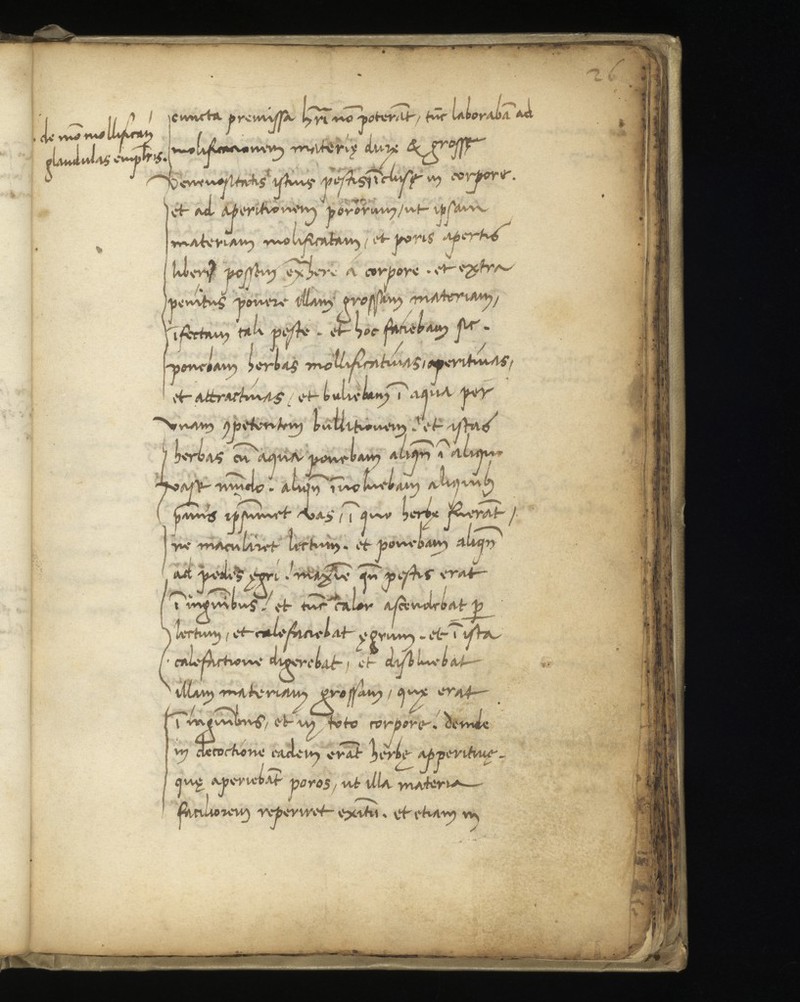 26
de mō mollificādi
glandulas emplr̄is.
cuncta premissa hr̄i nō poterāt, tūc laborabā ad
molificacionem materię durę & grossę
venenositatis istius pestis īclusę in corpore.
et ad aperitionem pororum / ut ipsam
materiam molificatam, et poris apertis
liberis possem ex̄here a corpore. et extra
penitus ponere illam grossam materiam,
īfectam tali peste. et hoc faciebam sic.
ponebam herbas mollificativas, aperitivas,
et attractivas, et buliebam ī aqua per
unam ꝯpetentem bullitionem. et istas
herbas cū aqua ponebam aliqn̄ ī aliquo
vase mūdo. aliqn̄ īvoluebam aliquib
pannis ipsummet vas, ī quo herbę fuerāt,
ne macularet lectum. et ponebam aliqn̄
ad pedes ęgri. maxīe qn̄ pestis erat
ī inguīibus. et tūc calor ascendebat ꝑ
lectum, et calefaciebat ęgrum. et ī ista
calefactione digerebat, et dissoluebat
illam materiam grossam, quę erat
ī inguīibus, et in toto corpore. deinde
in decoctione eadem erāt herbę apperitivę.
quę aperiebāt poros, ut illa materia
faciliorem reperiret exitū. et etiam in